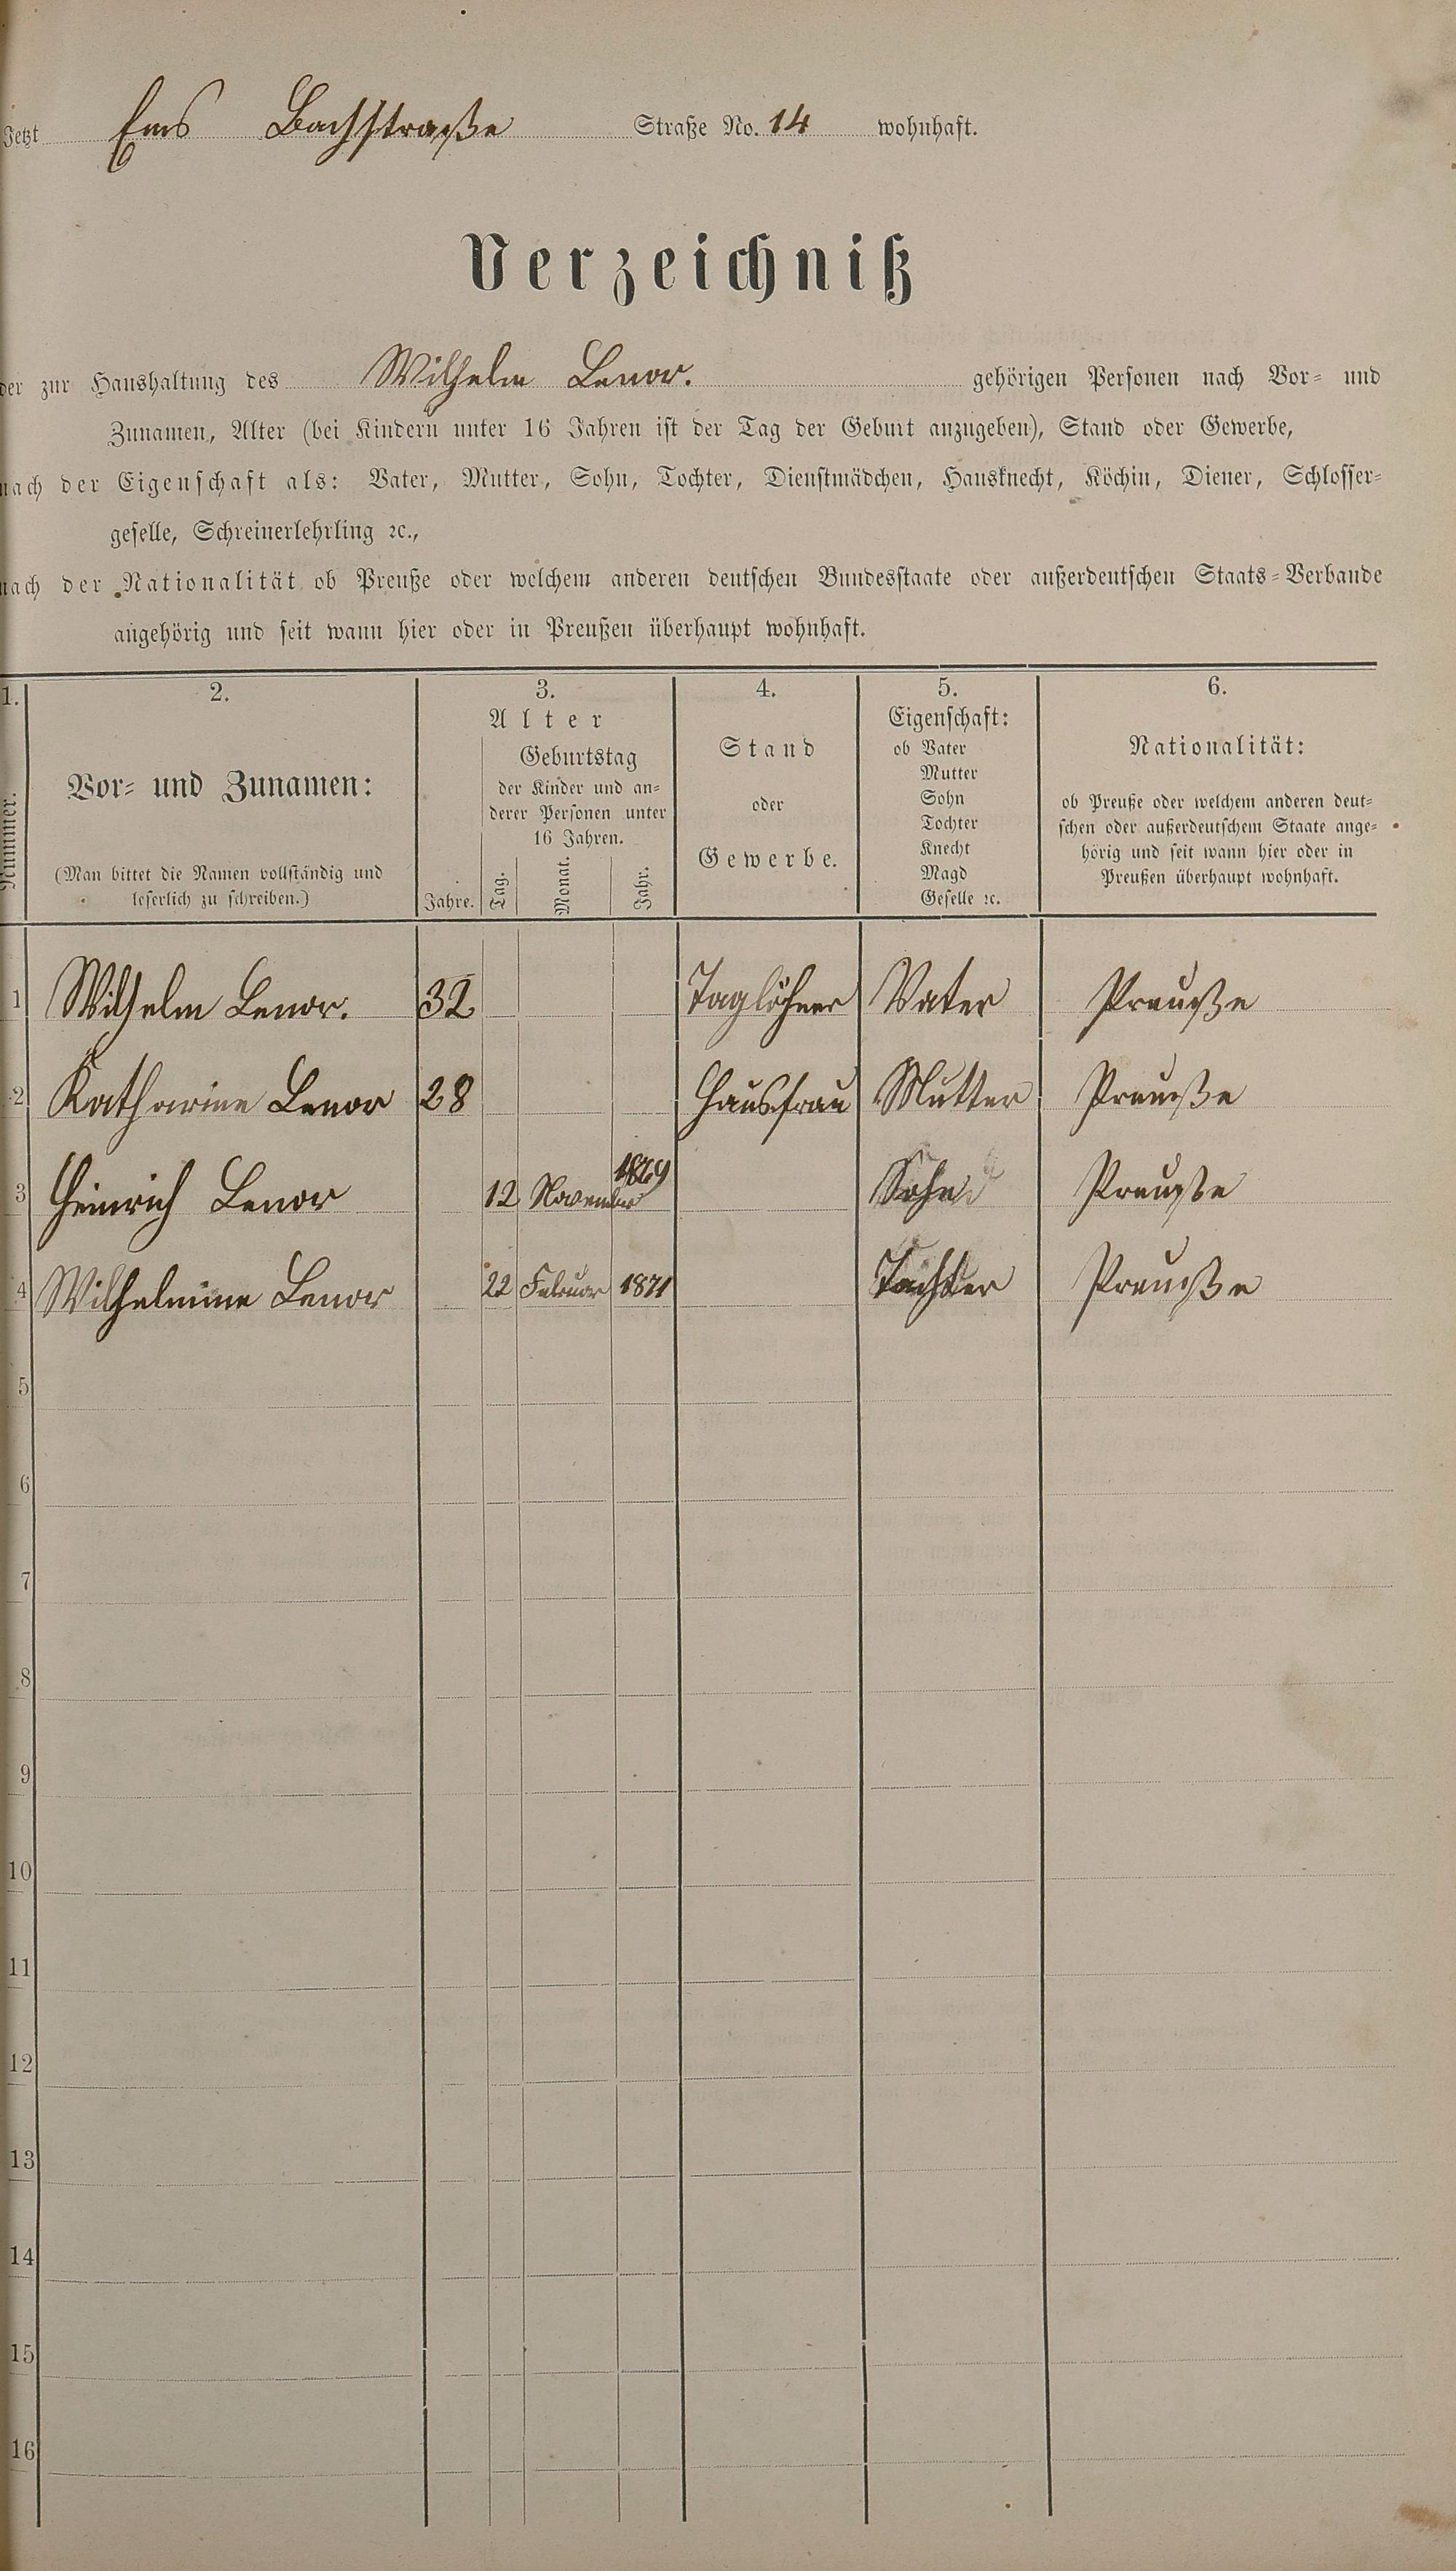 Jetzt Ems Bachstraße Straße No. 14 wohnhaft.
Verzeichniß
der zur Haushaltung des Wilhelm Lenor. gehörigen Personen nach Vor- und
Zunamen, Alter (bei Kindern unter 16 Jahren ist der Tag der Geburt anzugeben), Stand oder Gewerbe,
nach der Eigenschaft als: Vater, Mutter, Sohn, Tochter, Dienstmädchen, Hausknecht, Köchin, Diener, Schlosser-
geselle, Schreinerlehrling ꝛc.,
nach der Nationalität ob Preuße oder welchem anderen deutschen Bundesstaate oder außerdeutschen Staats-Verbande
angehörig und seit wann hier oder in Preußen überhaupt wohnhaft.
1.
Nummer.
2.
Vor- und Zunamen:
(Man bittet die Namen vollständig und
leserlich zu schreiben.)
3.
Alter
Jahre.
Geburtstag
der Kinder und an-
derer Personen unter
16 Jahren.
Tag.
Monat.
Jahr.
4.
Stand
oder
Gewerbe.
5.
Eigenschaft:
ob Vater
Mutter
Sohn
Tochter
Knecht
Magd
Geselle ꝛc.
6.
Nationalität:
ob Preuße oder welchem anderen deut-
schen oder außerdeutschem Staate ange-
hörig und seit wann hier oder in
Preußen überhaupt wohnhaft.
1 Wilhelm Lenor. 32 Taglöhner Vater Preuße
2 Katharine Lenor 28 Hausfrau Mutter Preuße
3 Heinrich Lenor 12 November 1869 Sohn Preuße
4 Wilhelmine Lenor 22 Februar 1871 Tochter Preuße
5
6
7
8
9
10
11
12
13
14
15
16